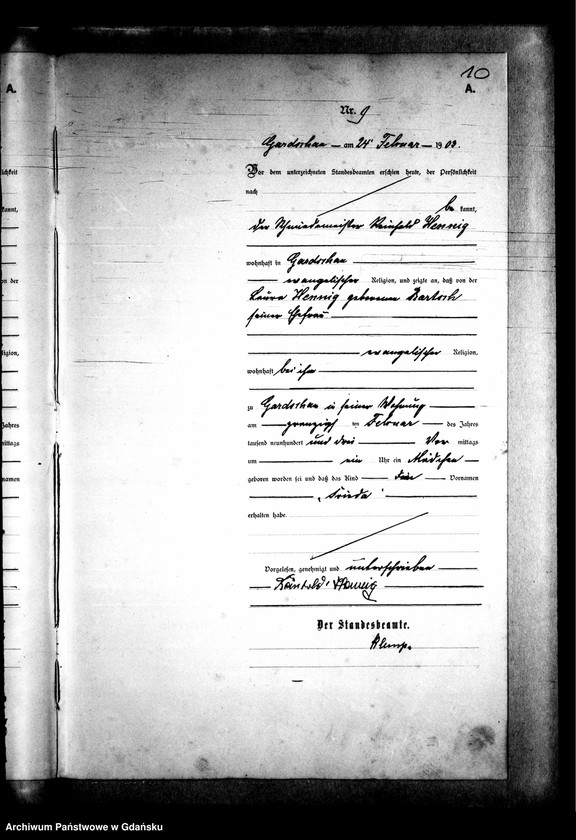 10
A.
A.
Nr. 9
Gardschau am 24 Februar 1903.
Vor dem unterzeichneten Standesbeamten erschien heute, der Persönlichkeit
nach
be kannt,
der Schmiedemeister Reinhold Hennig
wohnhaft in Gardschau
evangelischer Religion, und zeigte an, daß von der
Laura Hennig geborenen Bartsch
seiner Ehefrau
evangelischer Religion,
wohnhaft bei ihm
zu Gardschau in seiner Wohnung
am zwanzigsten Februar des Jahres
tausend neunhundert und drei Vor mittags
um ein Uhr ein Mädchen
geboren worden sei und daß das Kind den Vornamen
„Frieda“
erhalten habe.
Vorgelesen, genehmigt und unterschrieben
Hennig
Der Standesbeamte.
lichkeit
kannt,
on der
ligion,
Jahres
mittags
namen
Archiwum Państwowe w Gdańsku